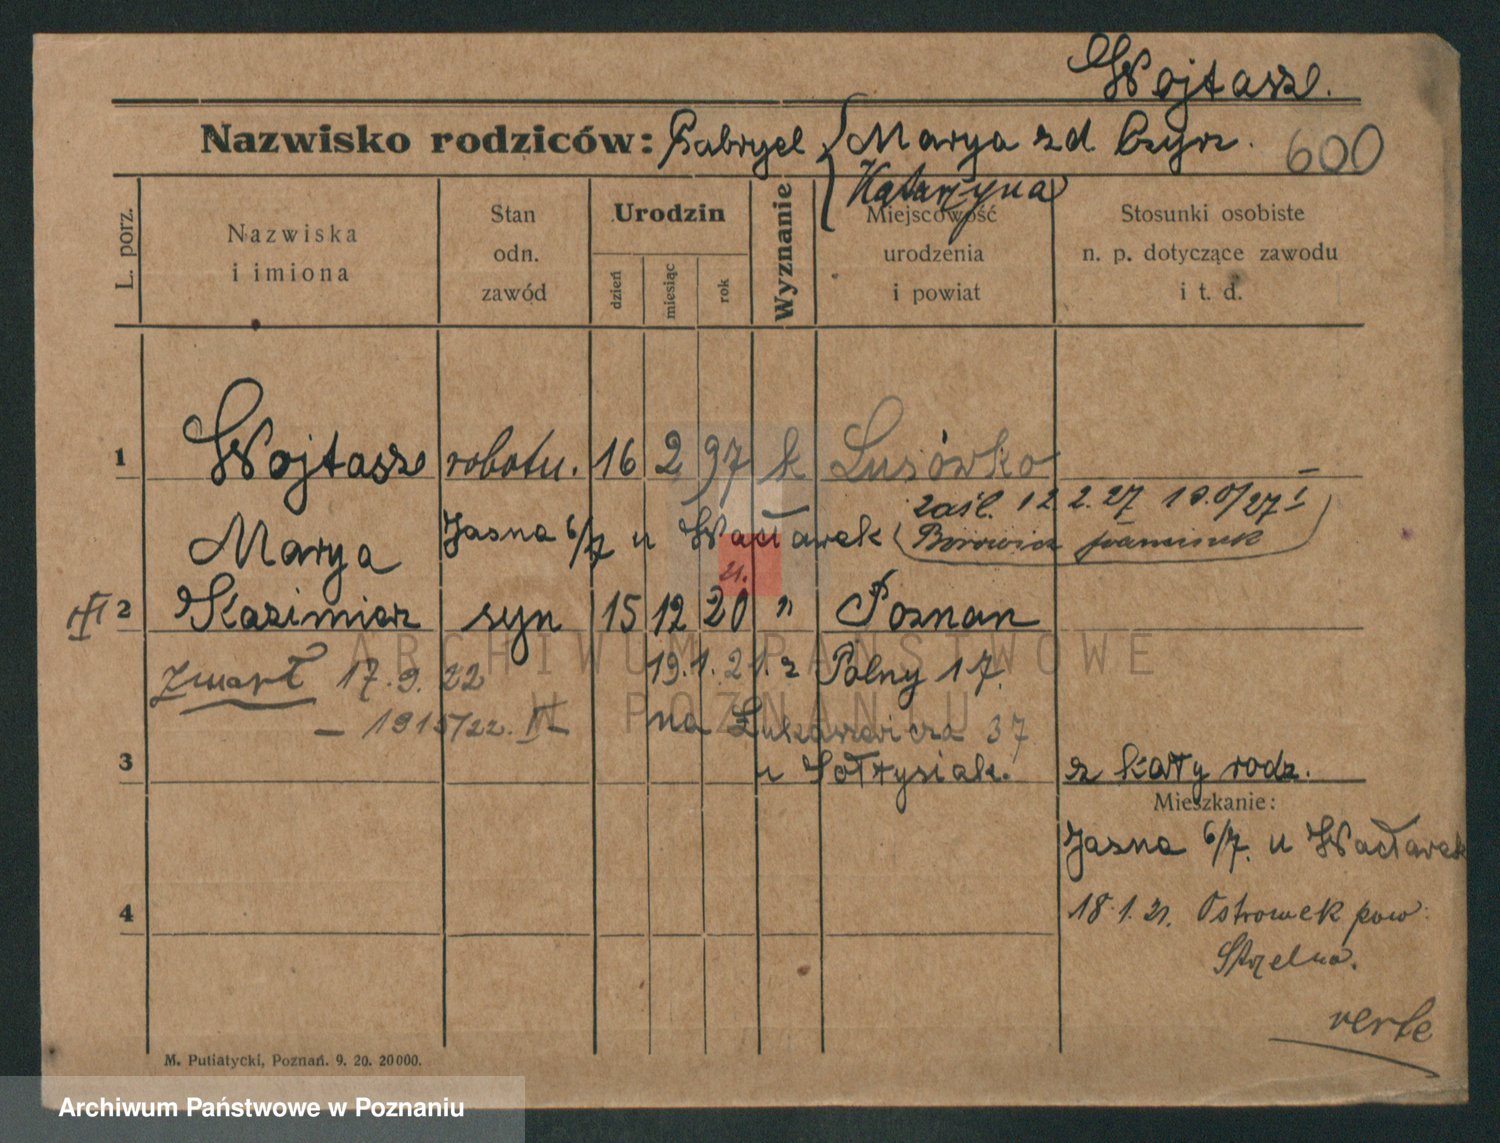 Wojtasz.
Nazwisko rodziców: Gabryel { Marya zd Czyrz. 600
Katarzyna
L. porz.
Nazwiska
i imiona
Stan
odn.
zawód
Urodzin
dzień
miesiąc
rok
Wyznanie
Miejscowość
urodzenia
i powiat
Stosunki osobiste
n. p. dotyczące zawodu
i t. d.
1 Wojtasz robotn. 16 2 97 k Lusówko
zaśl. 12.2.27
Marya Jasna 6/7 u Wacławek
2 Kazimierz syn 15 12 20 " Poznan
zmarł 17.9.22 19.1.21. z Polny 17.
– 1915/22. III – na Łukaszewicza 37
3 u Sołtysiak. z karty rodz.
Mieszkanie:
Jasna 6/7. u Wacławek
4 18.1.21. Ostrowek pow.
Strzelno.
verte
M. Putiatycki, Poznań. 9. 20. 20000.
ARCHIWUM PAŃSTWOWE
W POZNANIU
Archiwum Państwowe w Poznaniu